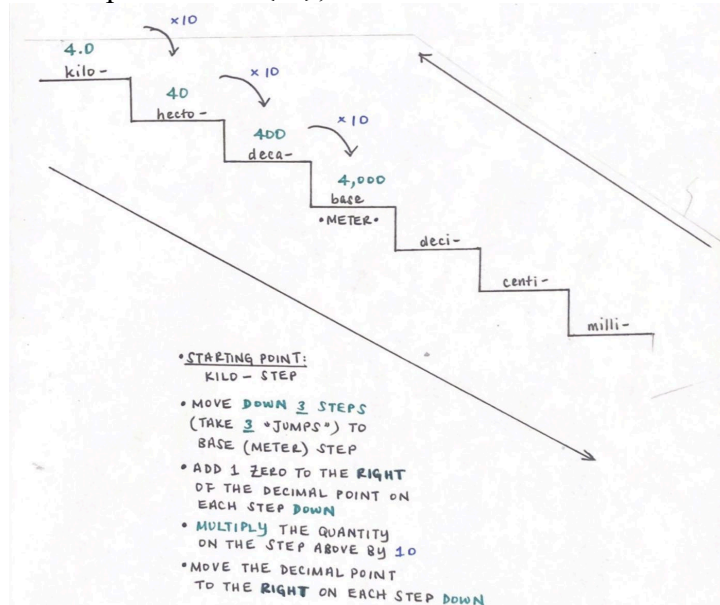 ×10
4.0
kilo-
×10
40
hecto-
×10
400
deca-
4,000
base
•METER•
deci-
centi-
milli-
•STARTING POINT:
KILO - STEP
•MOVE DOWN 3 STEPS
(TAKE 3 "JUMPS") TO
BASE (METER) STEP
•ADD 1 ZERO TO THE RIGHT
OF THE DECIMAL POINT ON
EACH STEP DOWN
•MULTIPLY THE QUANTITY
ON THE STEP ABOVE BY 10
•MOVE THE DECIMAL POINT
TO THE RIGHT ON EACH STEP DOWN